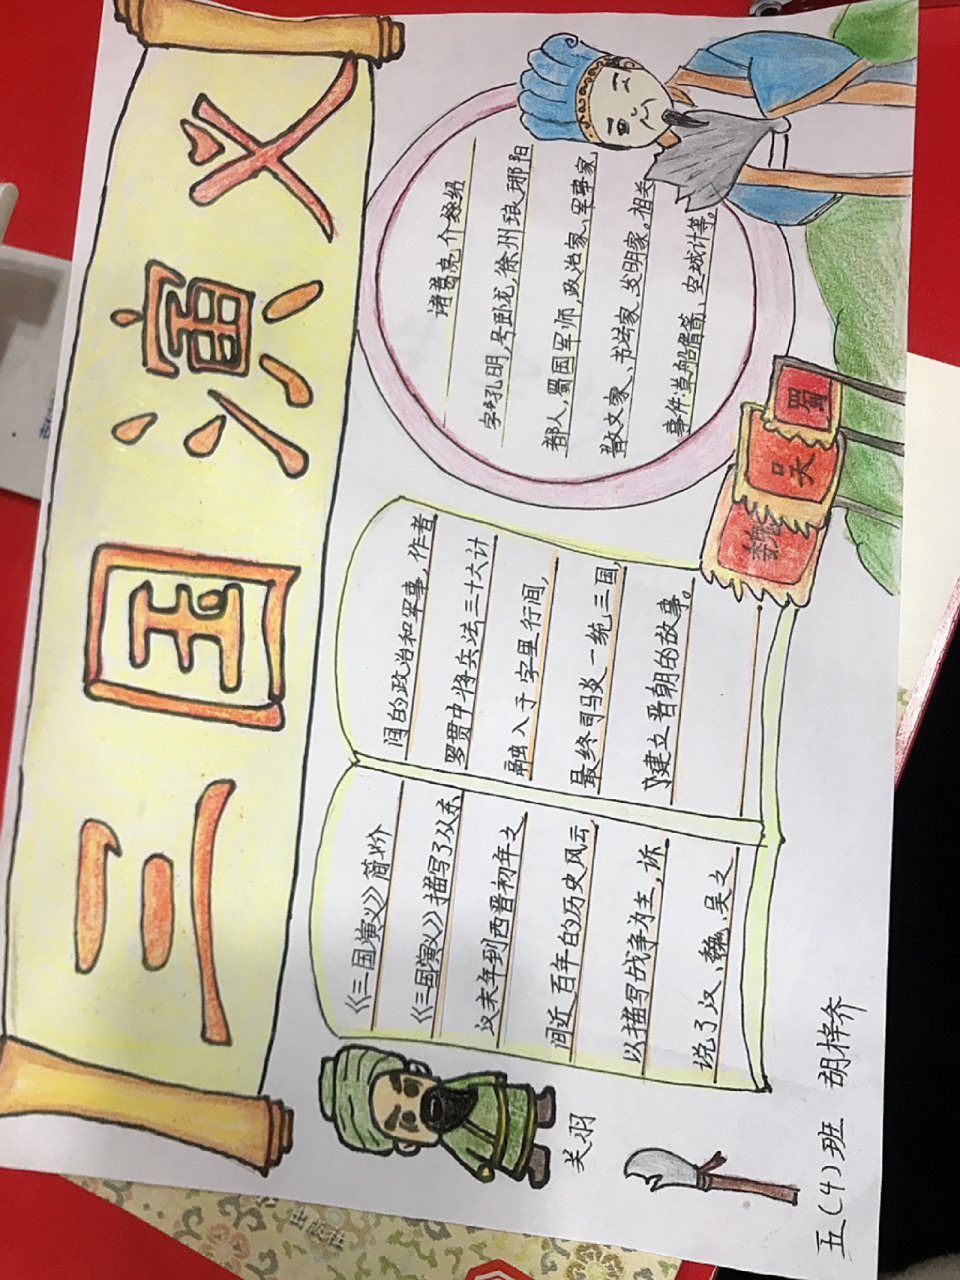 三国演义
《三国演义》简介
《三国演义》描写了从东
汉末年到西晋初年之
间近百年的历史风云
以描写战争为主,诉
说了汉、魏、吴之
间的政治和军事,作者
罗贯中将兵法三十六计
融入于字里行间,
最终司马炎一统三国,
建立晋朝的故事。
诸葛亮介绍
字孔明,号卧龙,徐州琅琊阳
都人,蜀国军师,政治家、军事家
散文家、书法家、发明家。相关
事件:草船借箭、空城计等。
魏
吴
蜀
关羽
五(4)班 胡梓齐